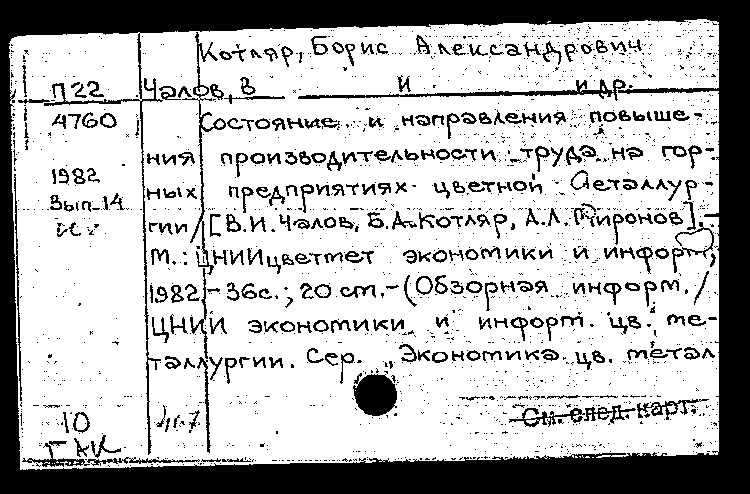 Котляр, Борис Александрович
П22 Чалов, В И и др.
4760 Состояние и направления повыше-
ния производительности труда на гор-
1982
ных предприятиях цветной металлур-
Вып. 14
гии / [В.И. Чалов, Б.А. Котляр, А.Л. Миронов]. -
М.: ЦНИИцветмет экономики и информ.,
1982 - 36с.; 20 см. - (Обзорная информ. /
ЦНИИ экономики и информ. цв. ме-
таллургии. Сер. „Экономика цв. метал
См. след. карт.
10
ГАК